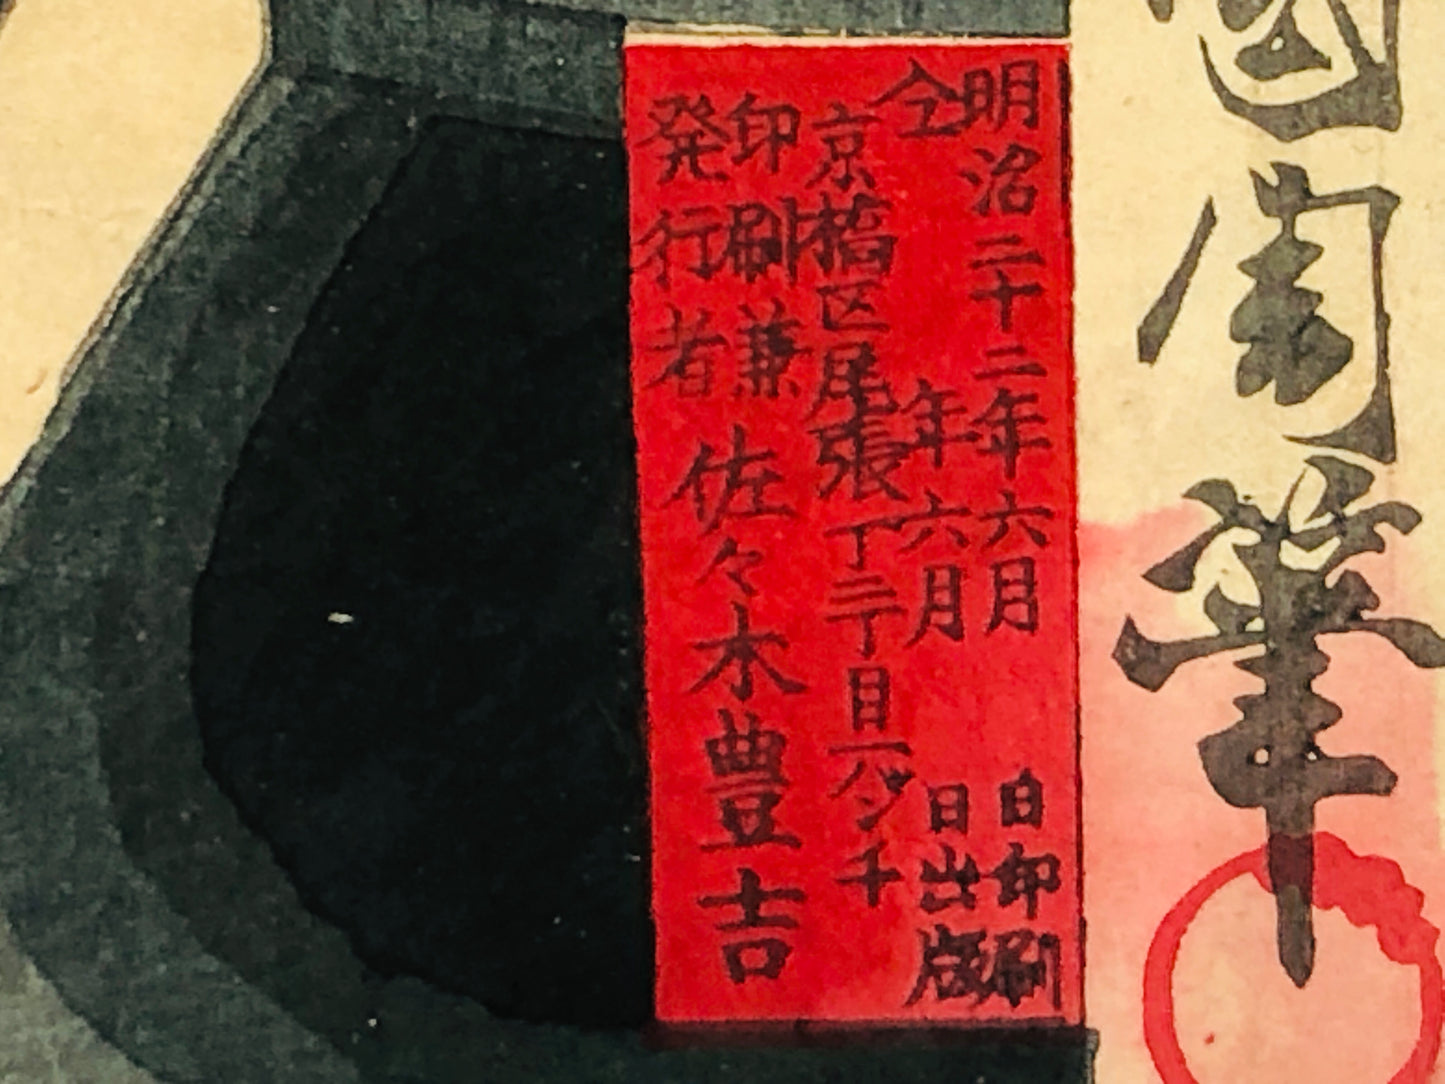 國周筆
明治二十二年六月 日印刷
仝 年六月 日出版
京橋区尾張丁二丁目一バンチ
印刷兼
発行者
佐々木豊吉